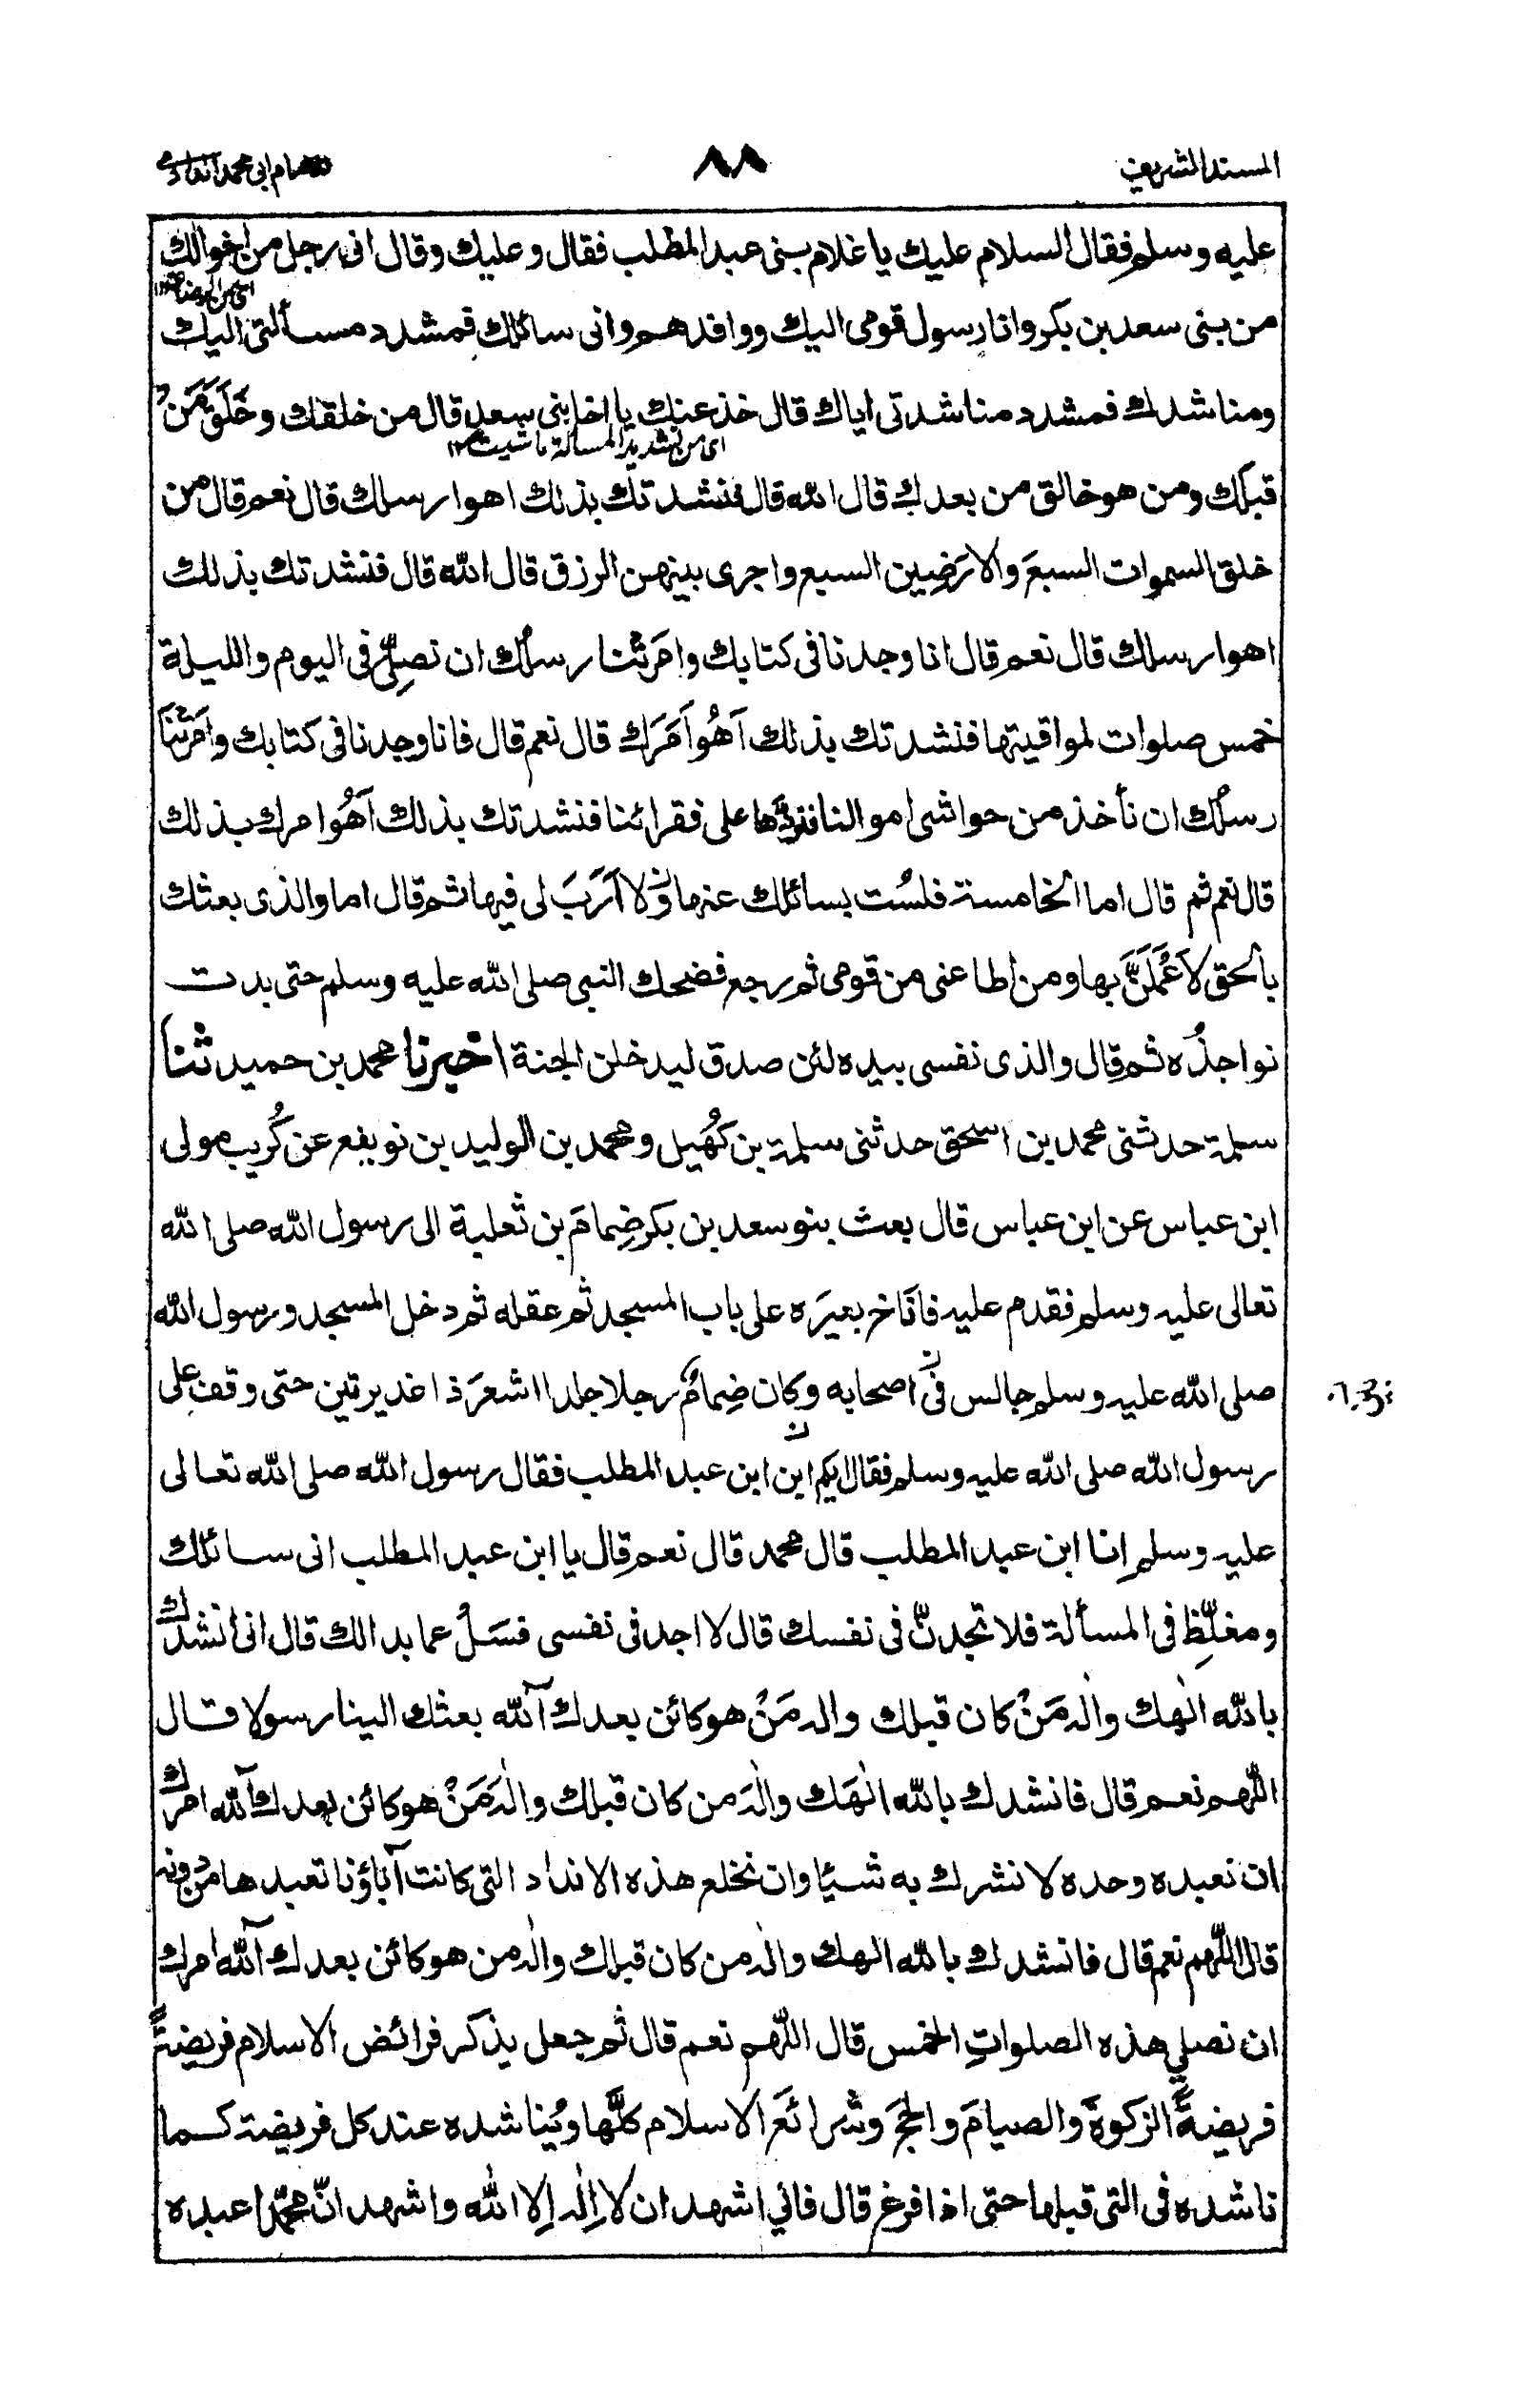 المسند الشريف ٨٨ للامام ابي محمد الدارمي
عليه وسلم فقال السلام عليك يا غلام بنى عبد المطلب فقال وعليك وقال انى رجل من اخوالك
اى من الرضاعة ١٢
من بنى سعد بن بكر وانا رسول قومى اليك ووافدهم وانى سائلك فمشدد مسألتى اليك
ومناشدك فمشدد مناشدتى اياك قال خذ عنك يا اخا بنى سعد قال من خلقك وخَلَقَ مَنْ
اى من تشديد المسألة ما شيت ١٢
قبلك ومن هو خالق من بعدك قال الله قال فنشدتك بذلك اهو ارسلك قال نعم قال من
خلق السموات السبعَ والارَضِين السبع واجرى بينهن الرزق قال الله قال فنشدتك بذلك
اهو ارسلك قال نعم قال انا وجدنا فى كتابك وامَرتْنا رسلُك ان نصلِّى فى اليوم والليلة
خمس صلوات لمواقيتها فنشدتك بذلك آهُو اَمَرَك قال نعم قال فانا وجدنا فى كتابك وامَرَتْنَا
رسلُك ان نأخذ من حواشى اموالنا فنردَّها على فقرائنا فنشدتك بذلك آهُو امرك بذلك
قال نعم ثم قال اما الخامسة فلستُ بسائلك عنها ولا اَرَبَ لى فيها ثم قال اما والذى بعثك
بالحق لاَعْمَلَنَّ بها ومن اطاعنى من قومى ثم رجع فضحك النبى صلى الله عليه وسلم حتى بدت
نواجذُه ثم قال والذى نفسى بيده لئن صدق ليدخلن الجنة اخبرنا محمد بن حميد ثنا
سلمة حدثنى محمد بن اسحق حدثنى سلمة بن كُهَيل ومحمد بن الوليد بن نويفع عن كُريب مولى
ابن عباس عن ابن عباس قال بعث بنو سعد بن بكر ضِمامَ بن ثعلبة الى رسول الله صلى الله
تعالى عليه وسلم فقدم عليه فانَاخ بعيرَه على باب المسجد ثم عقله ثم دخل المسجد ورسول الله
صلى الله عليه وسلم جالس فى اصحابه وكان ضِمامٌ رجلا جلدا اشعرَ ذا غديرتين حتى وقف على
رسول الله صلى الله عليه وسلم فقال ايكم ابن ابن عبد المطلب فقال رسول الله صلى الله تعالى
عليه وسلم انا ابن عبد المطلب قال محمد قال نعم قال يا ابن عبد المطلب انى سائلك
ومغلِّظ فى المسألة فلا تجدنّ فى نفسك قال لا اجد فى نفسى فسَلْ عما بدا لك قال انى انشدك
بالله الٰهك والٰه مَنْ كان قبلك واله مَنْ هو كائن بعدك آلله بعثك الينا رسولا قال
اللّهم نعم قال فانشدك بالله الٰهَك والٰهَ من كان قبلك والٰهَ مَنْ هو كائن بعدك آلله امرك
ان نعبده وحده لا نشرك به شيئا وان نخلع هذه الانداد التى كانت آباؤنا تعبدها من دونه
قال اللّٰهم نعم قال فانشدك بالله الهك والٰه من كان قبلك والٰه من هو كائن بعدك آلله امرك
ان نصلي هذه الصلواتِ الخمس قال اللّٰهم نعم قال ثم جعل يذكر فرائض الاسلام فريضةً
فريضةً الزكوةَ والصيامَ والحجَ وشرائعَ الاسلام كلَّها ويُناشده عند كل فريضة كما
ناشده فى التى قبلها حتى اذا فرغ قال فاني اشهد ان لا اِلٰه اِلا الله واشهد انّ محمّدا عبده